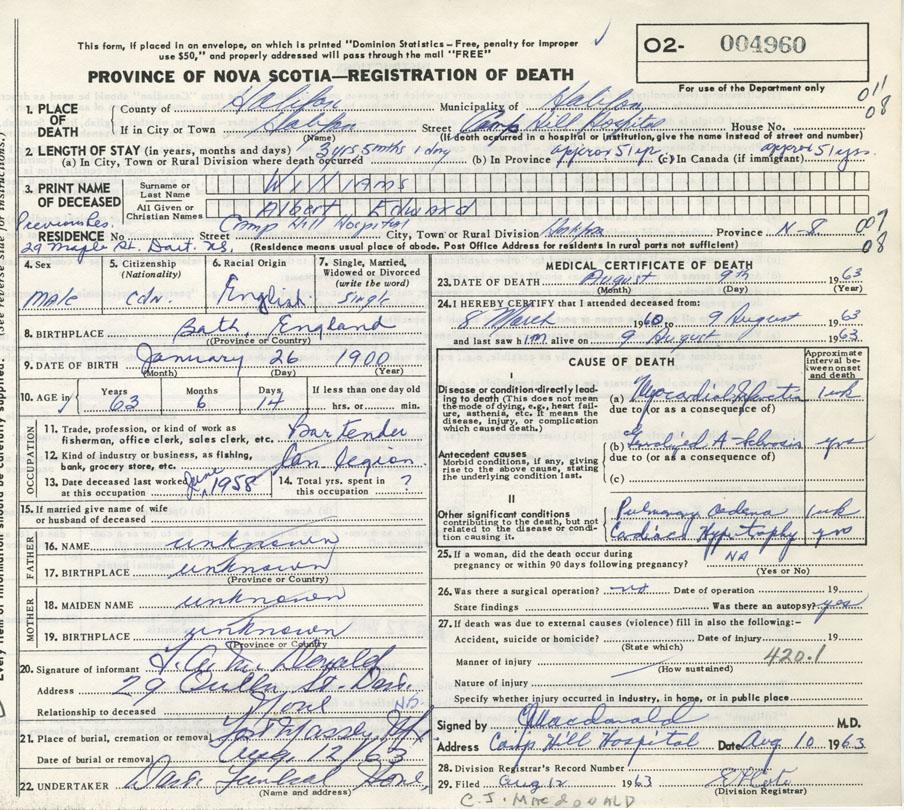 This form, if placed in an envelope, on which is printed "Dominion Statistics - Free, penalty for improper
use $50," and properly addressed will pass through the mail "FREE"
O2- 004960
For use of the Department only
PROVINCE OF NOVA SCOTIA—REGISTRATION OF DEATH
011
08
1. PLACE OF DEATH
County of Halifax Municipality of Halifax
If in City or Town Halifax Street Camp Hill Hospital House No.
(Name) (If death occurred in a hospital or institution, give the name instead of street and number)
2. LENGTH OF STAY (in years, months and days) 3 yrs 5 mths 1 day
(a) In City, Town or Rural Division where death occurred (b) In Province approx 51 yr. (c) In Canada (if immigrant) approx 51 yrs.
3. PRINT NAME OF DECEASED
Surname or Last Name Williams
All Given or Christian Names Albert Edward
Previous res.
RESIDENCE No. Street Camp Hill Hospital City, Town or Rural Division Halifax Province N-S 007
29 Maple St. Dart. NS. (Residence means usual place of abode. Post Office Address for residents in rural parts not sufficient) 08
4. Sex Male
5. Citizenship (Nationality) Cdn.
6. Racial Origin English
7. Single, Married, Widowed or Divorced (write the word) Single
8. BIRTHPLACE Bath, England
(Province or Country)
9. DATE OF BIRTH January 26 1900
(Month) (Day) (Year)
10. AGE in Years 63 Months 6 Days 14 If less than one day old hrs. or min.
OCCUPATION
11. Trade, profession, or kind of work as fisherman, office clerk, sales clerk, etc. Bartender
12. Kind of industry or business, as fishing, bank, grocery store, etc. Can legion
13. Date deceased last worked at this occupation June 1958 14. Total yrs. spent in this occupation ?
15. If married give name of wife or husband of deceased
FATHER
16. NAME unknown
17. BIRTHPLACE unknown
(Province or Country)
MOTHER
18. MAIDEN NAME unknown
19. BIRTHPLACE unknown
(Province or Country)
20. Signature of informant
Address 29 St. Dart.
Relationship to deceased None NS.
21. Place of burial, cremation or removal
Date of burial or removal Aug. 12/63
22. UNDERTAKER Dart. Funeral Home
(Name and address)
MEDICAL CERTIFICATE OF DEATH
23. DATE OF DEATH August 9th 1963
(Month) (Day) (Year)
24. I HEREBY CERTIFY that I attended deceased from:
8 March 1960 to 9 August 1963
and last saw him alive on 9 August 1963
CAUSE OF DEATH
Approximate interval between onset and death
I
Disease or condition directly leading to death (This does not mean the mode of dying, e.g., heart failure, asthenia, etc. It means the disease, injury, or complication which caused death.)
(a) Myocardial Infarction 1 wk
due to (or as a consequence of)
Antecedent causes
Morbid conditions, if any, giving rise to the above cause, stating the underlying condition last.
(b) A-sclerosis yrs
due to (or as a consequence of)
(c)
II
Other significant conditions contributing to the death, but not related to the disease or condition causing it.
Pulmonary Oedema 1 wk
Cardiac Hypertrophy yrs
25. If a woman, did the death occur during pregnancy or within 90 days following pregnancy? NA
(Yes or No)
26. Was there a surgical operation? no Date of operation 19
State findings Was there an autopsy? yes
27. If death was due to external causes (violence) fill in also the following:-
Accident, suicide or homicide? Date of injury 19
(State which)
Manner of injury 420.1
(How sustained)
Nature of injury
Specify whether injury occurred in industry, in home, or in public place
Signed by CJ Macdonald M.D.
Address Camp Hill Hospital Date Aug 10 1963
28. Division Registrar's Record Number
29. Filed Aug 12 1963
(Division Registrar)
C. J. MacDONALD